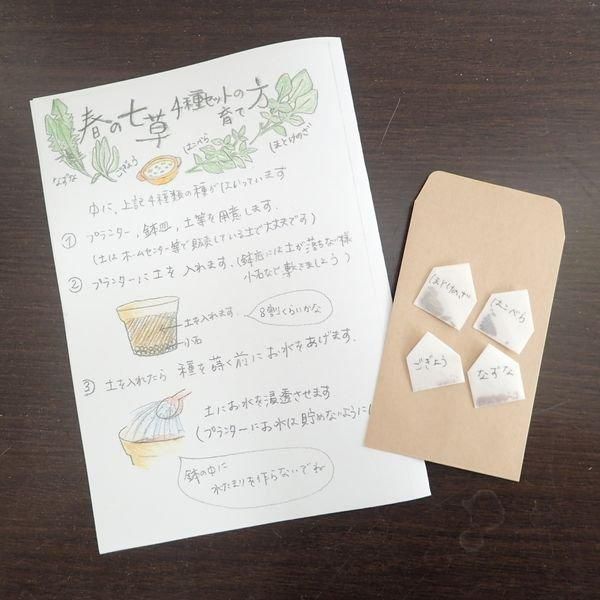 春の七草 4種セットの育て方
なずな
ごぎょう
はこべら
ほとけのざ
中に、上記4種類の種がはいっています
① プランター、鉢皿、土等を用意します。
(土はホームセンター等で販売している土で大丈夫です)
② プランターに土を入れます。(鉢底には土が落ちない様
小石など敷きましょう)
土を入れます
小石
8割くらいかな
③ 土を入れたら 種を蒔く前にお水をあげます。
土にお水を浸透させます
(プランターにお水は貯めないように
鉢の中に
水たまりを作らないでね
ほとけのざ
はこべら
ごぎょう
なずな